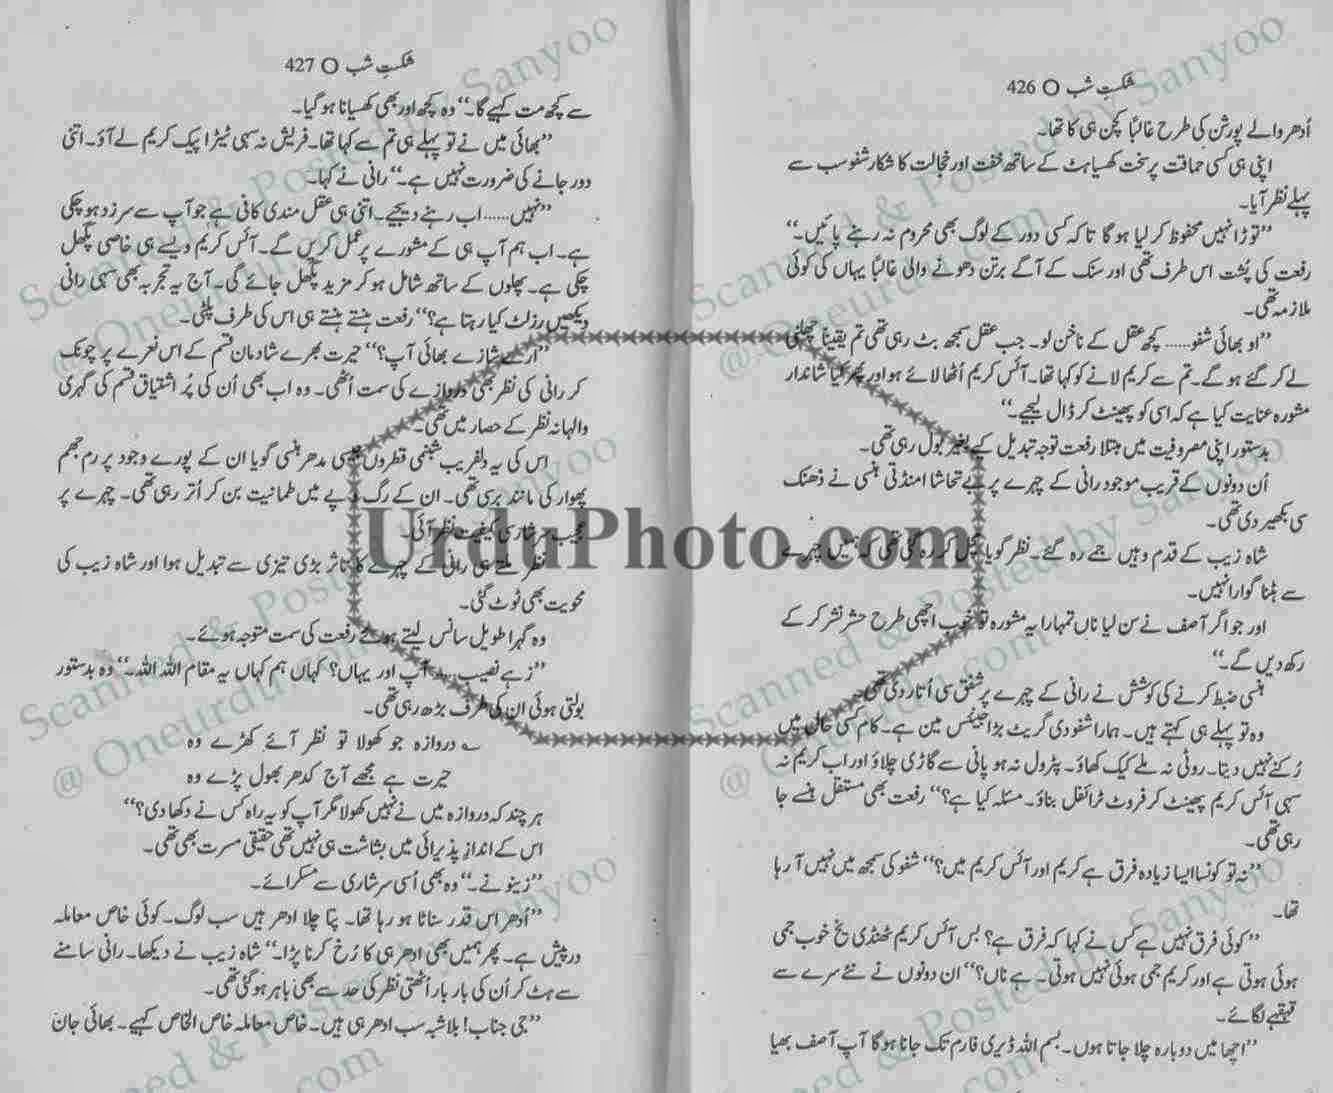 شکستِ شب O 426
اُدھر والے پورشن کی طرح غالباً کچن ہی کا تھا۔
اپنی ہی کسی حماقت پر سخت کھسیاہٹ کے ساتھ خفت اور خجالت کا شکار شفو سب سے
پہلے نظر آیا۔
”توڑا نہیں محفوظ کر لیا ہو گا تاکہ کسی دور کے لوگ بھی محروم نہ رہنے پائیں۔“
رفعت کی پُشت اس طرف تھی اور سنک کے آگے برتن دھونے والی غالباً یہاں کی کوئی
ملازمہ تھی۔
”او بھائی شفو...... کچھ عقل کے ناخن لو۔ جب عقل سمجھ بٹ رہی تھی تم یقیناً چھلنی
لے کر گئے ہو گے۔ تم سے کریم لانے کو کہا تھا۔ آئس کریم اُٹھا لائے ہو اور پھر کیا شاندار
مشورہ عنایت کیا ہے کہ اسی کو پھینٹ کر ڈال لیجیے۔“
بدستور اپنی مصروفیت میں مبتلا رفعت توجہ تبدیل کیے بغیر بول رہی تھی۔
اُن دونوں کے قریب موجود رانی کے چہرے پر بے تحاشا امنڈتی ہنسی نے دھنک
سی بکھیر دی تھی۔
شاہ زیب کے قدم وہیں جمے رہ گئے۔ نظر گویا کہہ رہ گئی تھی کہ ہمیں چہرے
سے ہٹنا گوارا نہیں۔
اور جو اگر آصف نے سن لیا ناں تمہارا یہ مشورہ تو خوب اچھی طرح حشر نشر کر کے
رکھ دیں گے۔“
ہنسی ضبط کرنے کی کوشش نے رانی کے چہرے پر شفق سی اُتار دی تھی۔
وہ تو پہلے ہی کہتے ہیں۔ ہمارا شفو دی گریٹ بڑا جینئس مین ہے۔ کام کسی حال میں
رُکنے نہیں دیتا۔ روٹی نہ ملے کیک کھاؤ۔ پٹرول نہ ہو پانی سے گاڑی چلاؤ اور اب کریم نہ
سہی آئس کریم پھینٹ کر فروٹ ٹرائفل بناؤ۔ مسئلہ کیا ہے؟“ رفعت بھی مستقل ہنسے جا
رہی تھی۔
”نہ تو کونسا ایسا زیادہ فرق ہے کریم اور آئس کریم میں؟“ شفو کی سمجھ میں نہیں آ رہا
تھا۔
”کوئی فرق نہیں ہے کس نے کہا کہ فرق ہے؟ بس آئس کریم ٹھنڈی یخ خوب جمی
ہوئی ہوتی ہے اور کریم جمی ہوئی نہیں ہوتی۔ ہے ناں؟“ ان دونوں نے نئے سرے سے
قہقہے لگائے۔
”اچھا میں دوبارہ چلا جاتا ہوں۔ بسم اللہ ڈیری فارم تک جانا ہو گا آپ آصف بھیا
شکستِ شب O 427
سے کچھ مت کہیے گا۔“ وہ کچھ اور بھی کھسیانا ہو گیا۔
”بھائی میں نے تو پہلے ہی تم سے کہا تھا۔ فریش نہ سہی ٹیٹرا پیک کریم لے آؤ۔ اتنی
دور جانے کی ضرورت نہیں ہے۔“ رانی نے کہا۔
”نہیں...... اب رہنے دیجیے۔ اتنی ہی عقل مندی کافی ہے جو آپ سے سرزد ہو چکی
ہے۔ اب ہم آپ ہی کے مشورے پر عمل کریں گے۔ آئس کریم ویسے ہی خاصی پگھل
چکی ہے۔ پھلوں کے ساتھ شامل ہو کر مزید پگھل جائے گی۔ آج یہ تجربہ بھی سہی رانی
دیکھیں رزلٹ کیا رہتا ہے؟“ رفعت ہنستے ہنستے ہی اس کی طرف پلٹی۔
”ارے شازے بھائی آپ؟“ حیرت بھرے شادمان قسم کے اس نعرے پر چونک
کر رانی کی نظر بھی دروازے کی سمت اُٹھی۔ وہ اب بھی اُن کی پُر اشتیاق قسم کی گہری
والہانہ نظر کے حصار میں تھی۔
اس کی یہ دلفریب شبنمی قطروں جیسی مدھر ہنسی گویا ان کے پورے وجود پر رم جھم
پھوار کی مانند برسی تھی۔ ان کے رگ و پے میں طمانیت بن کر اُتر رہی تھی۔ چہرے پر
عجیب سرشار سی کیفیت نظر آئی۔
نظر ملتے ہی رانی کے چہرے کا تاثر بڑی تیزی سے تبدیل ہوا اور شاہ زیب کی
محویت بھی ٹوٹ گئی۔
وہ گہرا طویل سانس لیتے ہوئے رفعت کی سمت متوجہ ہوئے۔
”زہے نصیب...... آپ اور یہاں؟ کہاں ہم کہاں یہ مقام اللہ اللہ۔“ وہ بدستور
بولتی ہوئی ان کی طرف بڑھ رہی تھی۔
؎ دروازہ جو کھولا تو نظر آئے کھڑے وہ
حیرت ہے مجھے آج کدھر بھول پڑے وہ
ہر چند کہ دروازہ میں نے نہیں کھولا مگر آپ کو یہ راہ کس نے دکھا دی؟“
اس کے اندازِ پذیرائی میں بشاشت ہی نہیں تھی حقیقی مسرت بھی تھی۔
”زینو نے۔“ وہ بھی اُسی سرشاری سے مسکرائے۔
”اُدھر اس قدر سناٹا ہو رہا تھا۔ پتا چلا ادھر ہیں سب لوگ۔ کوئی خاص معاملہ
درپیش ہے۔ پھر ہمیں بھی ادھر ہی کا رُخ کرنا پڑا۔“ شاہ زیب نے دیکھا۔ رانی سامنے
سے ہٹ کر اُن کی بار بار اٹھتی نظر کی حد سے بھی باہر ہو گئی تھی۔
”جی جناب! بلاشبہ سب ادھر ہی ہیں۔ خاص معاملہ خاص الخاص کہیے۔ بھائی جان
UrduPhoto.com
Scanned & Posted by Sanyoo
@ Oneurdu.com